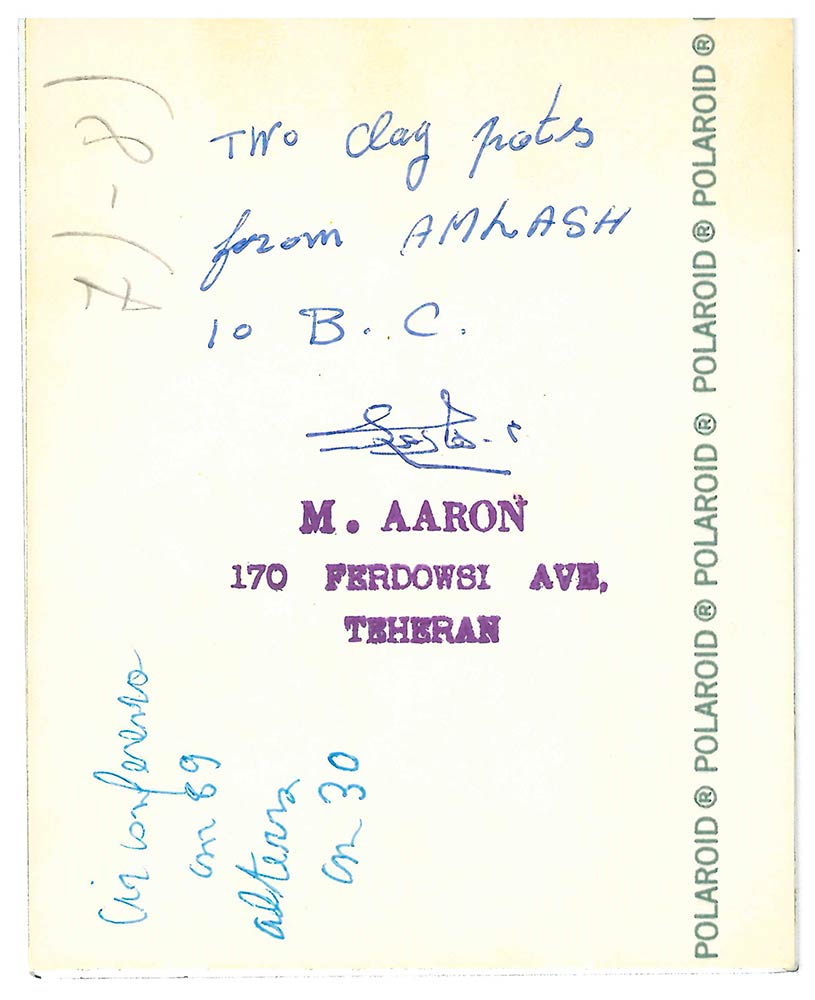 7)-8)
TWO clay pots
from AMLASH
10 B. C.
M. AARON
170 FERDOWSI AVE,
TEHERAN
circonferenza
cm 89
altezza
cm 30
POLAROID® POLAROID® POLAROID® POLAROID® POLAROID®